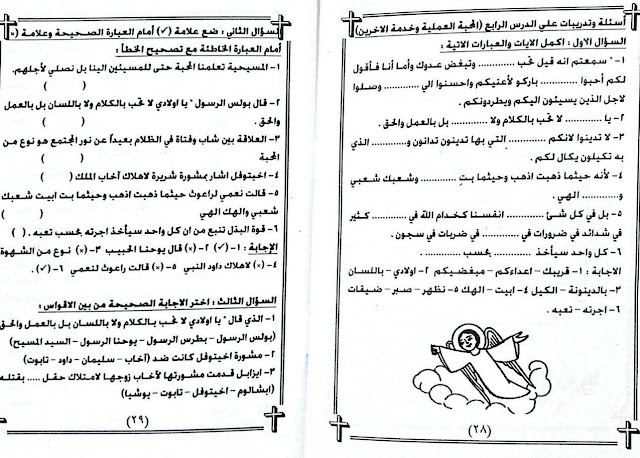 أسئلة وتدريبات على الدرس الرابع (المحبة العملية وخدمة الاخرين)
السؤال الاول : اكمل الايات والعبارات الاتية :
١- " سمعتم انه قيل تحب ............ وتبغض عدوك وأما أنا فأقول
لكم أحبوا ............ باركو لأعنيكم واحسنوا الي ............ وصلوا
لاجل الذين يسيئون اليكم ويطردونكم .
٢- يا ............ لا تحب بالكلام ولا ............ بل بالعمل والحق .
٣- لا تدينوا لانكم ............ التي بها تدينون تدانون و............ الذي
به تكيلون يكال لكم .
٤- لأنه حيثما ذهبت اذهب وحيثما بت ............ وشعبك شعبي
و............ الهي .
٥- بل في كل شئ ............ انفسنا كخدام الله في ............ كثير
في شدائد في ضرورات في ............ في ضربات في سجون .
٦- كل واحد سيأخذ ............ بحسب ............ .
الاجابة : ١- قريبك - اعداءكم - مبغضيكم ٢- اولادي - باللسان
٣- بالدينونة - الكيل ٤- ابيت - الهك ٥- نظهر - صبر - ضيقات
٦- اجرته - تعبه .
(٢٨)
السؤال الثاني : ضع علامة (✓) أمام العبارة الصحيحة وعلامة (×)
أمام العبارة الخاطئة مع تصحيح الخطأ :
١- المسيحية تعلمنا المحبة حتى للمسيئين الينا بل نصلي لأجلهم.
( )
٢- قال بولس الرسول " يا اولادي لا تحب بالكلام ولا باللسان بل بالعمل
والحق . ( )
٣- العلاقة بين شاب وفتاة في الظلام بعيداً عن نور المجتمع هو نوع من
المحبة ( )
٤- اخيتوفل اشار بمشورة شريرة لاهلاك آخاب الملك ( )
٥- قالت نعمي لراعوث حيثما ذهبت اذهب وحيثما بت ابيت شعبك
شعبي والهك الهي ( )
٦- قوة البذل تنبع من ان كل واحد سيأخذ اجرته بحسب تعبه . ( )
الإجابة : ١- (✓) ٢- (×) قال يوحنا الحبيب ٣- (×) نوع من الشهوة
٤- (×) لاهلاك داود النبي ٥- (×) قالت راعوث لنعمي ٦- (✓) .
السؤال الثالث : اختر الاجابة الصحيحة من بين الاقواس :
١- الذي قال " يا اولادي لا تحب بالكلام ولا باللسان بل بالعمل والحق
(بولس الرسول - بطرس الرسول - يوحنا الرسول - السيد المسيح)
٢- مشورة اخيتوفل كانت ضد (آخاب - سليمان - داود - تابوت)
٣- ايزابل قدمت مشورتها لأخاب زوجها لامتلاك حقل ..... بقتله
(ابشالوم - اخيتوفل - تابوت - يوشيا)
(٢٩)